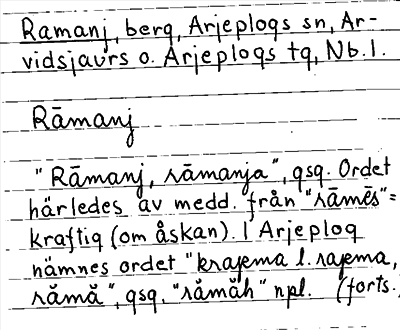 Ramanj, berg, Arjeplogs sn, Ar-
vidsjaurs o. Arjeplogs tg, Nb. l.
Rāmanj
"Rāmanj, rāmanja", gsg. Ordet
härledes av medd. från "rāmēs" =
kraftig (om åskan). I Arjeplog
nämnes ordet "krajema l. rajema,
rămă", gsg. "rămăh" npl. (forts.